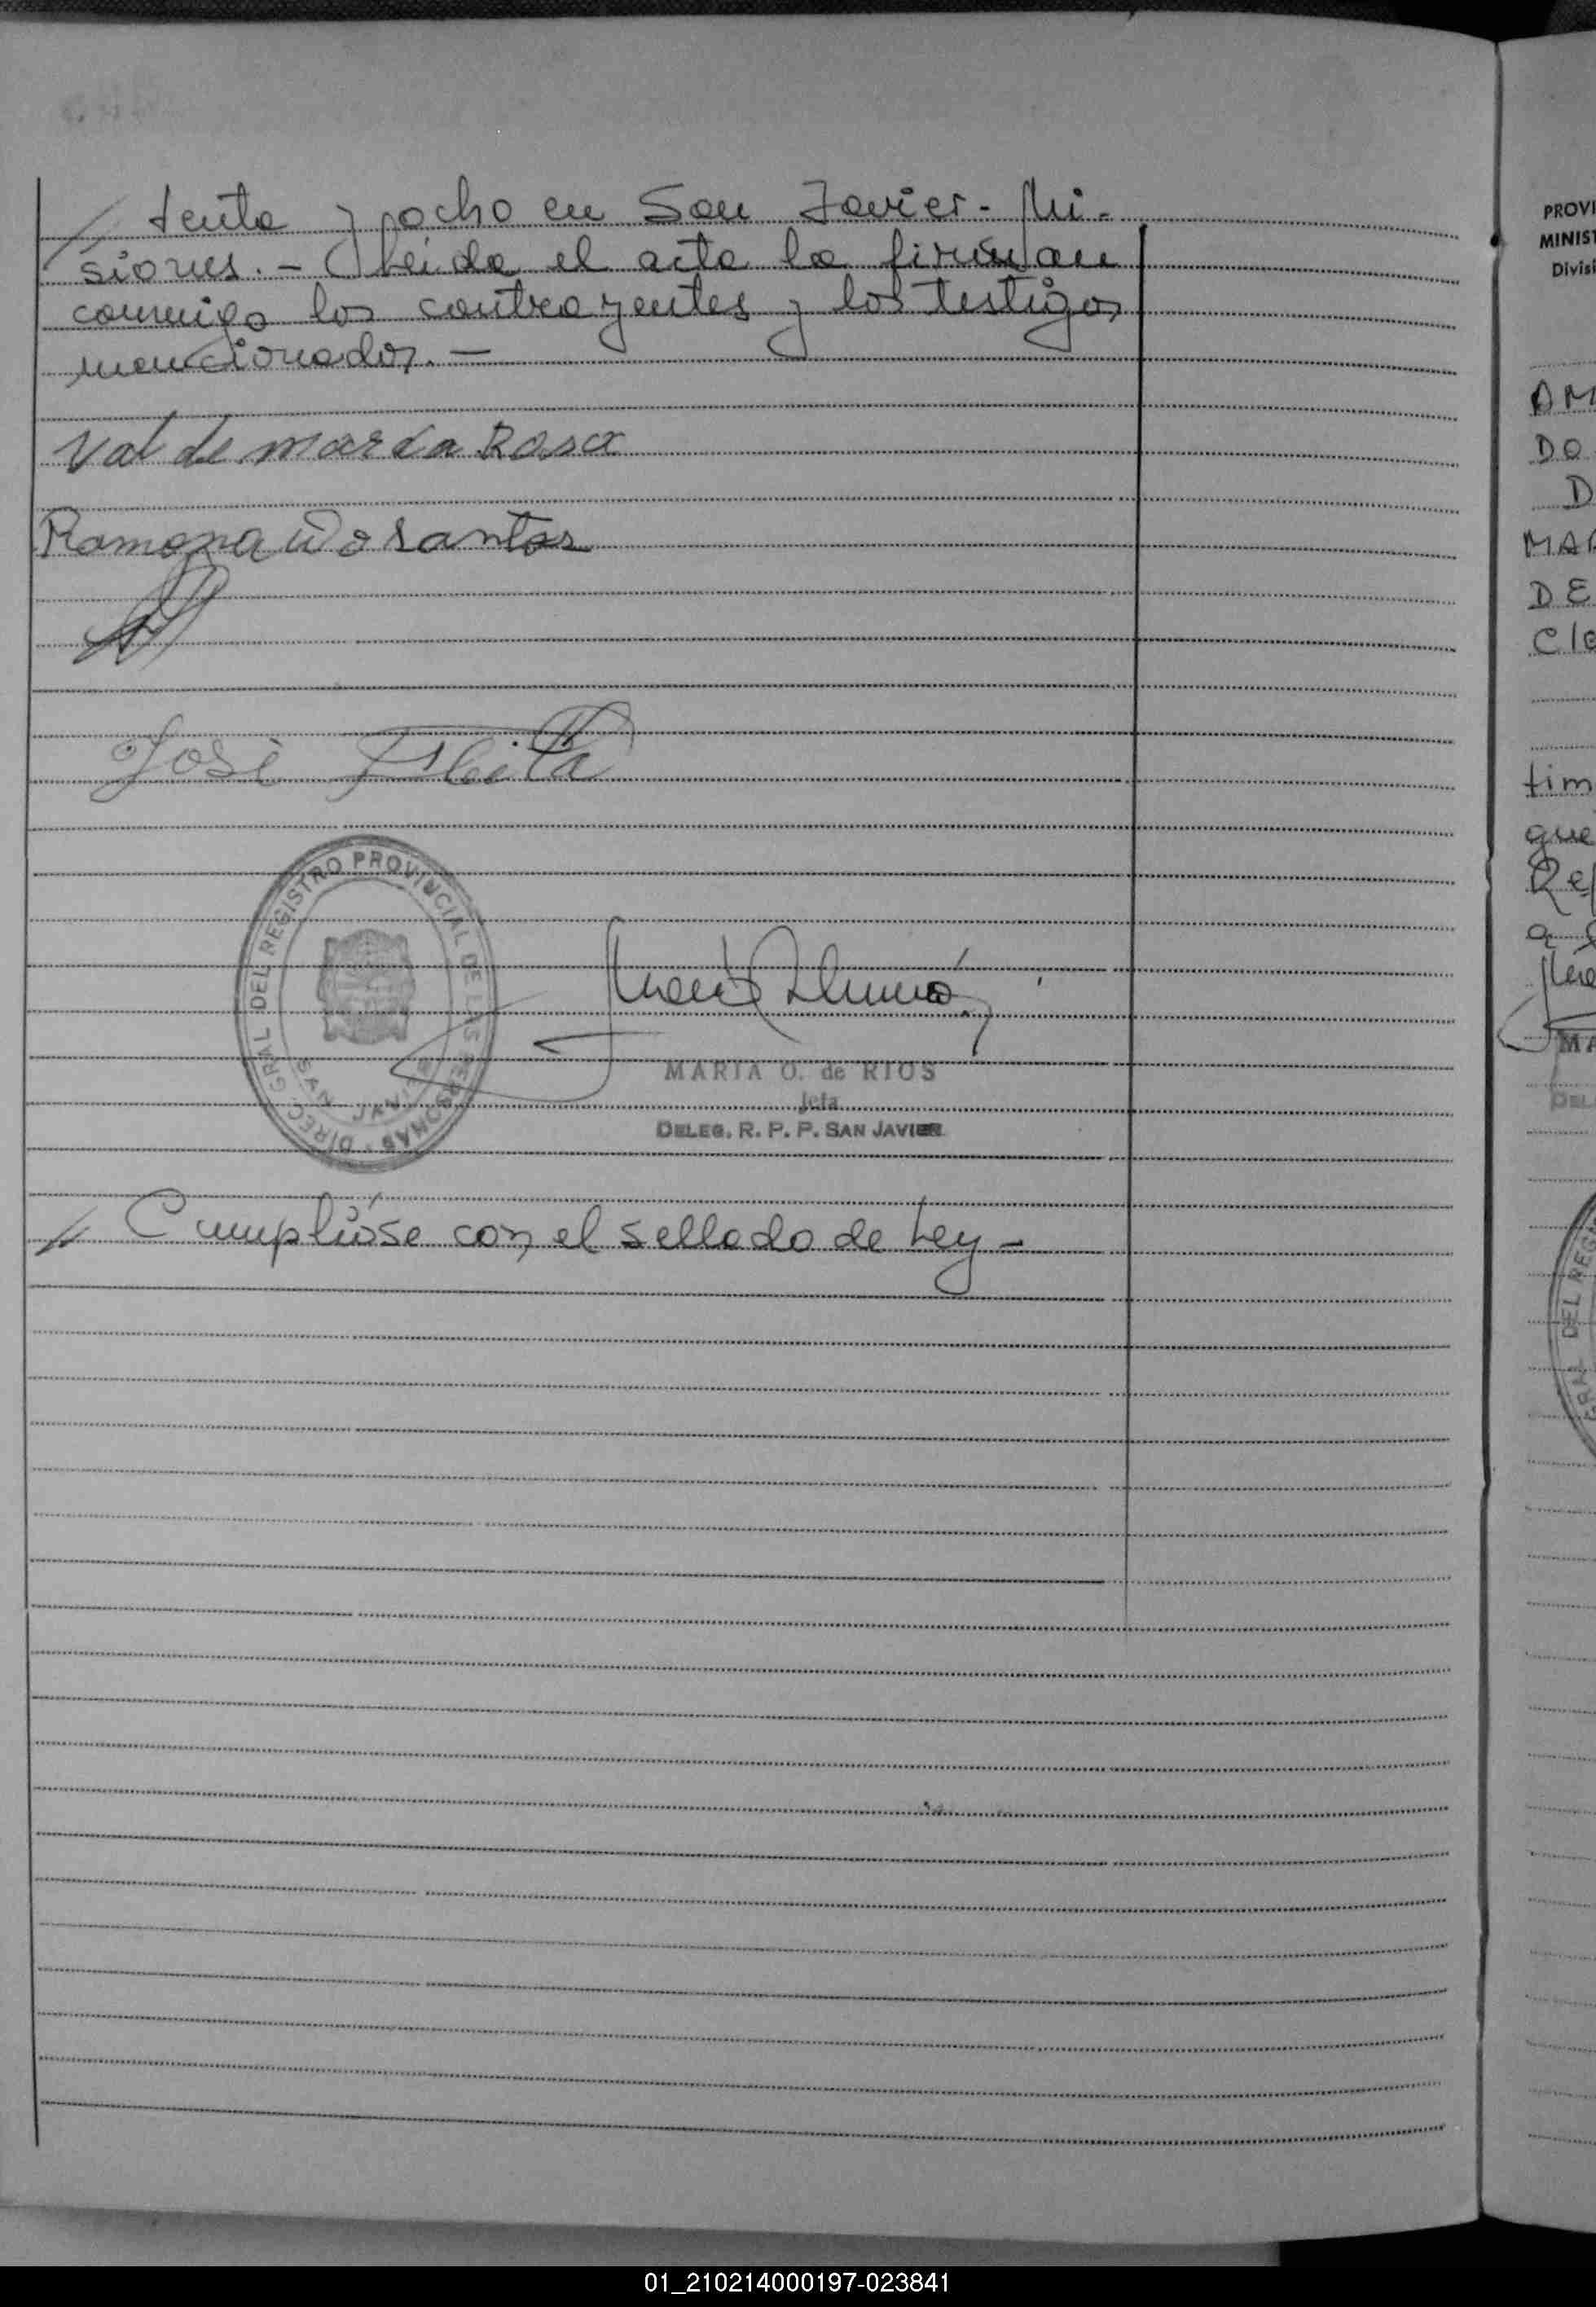 / tenta y ocho en San Javier - Mi-
siones. - Leida el acta la firman
conmigo los contrayentes y los testigos
mencionados. -
Valdemar da Rosa
Ramona Dosantos
José
DIREC. GRAL DEL REGISTRO PROVINCIAL DE LAS PERSONAS
SAN JAVIER
MARIA O. de RIOS
Jefa
DELEG. R. P. P. SAN JAVIER
// Cumplióse con el sellado de Ley -
PROVI
MINIST
Divisi
AM
DO
D
MAR
DE
CIO
tim
que
Rep
MA
DEL
DEL REG
01_210214000197-023841